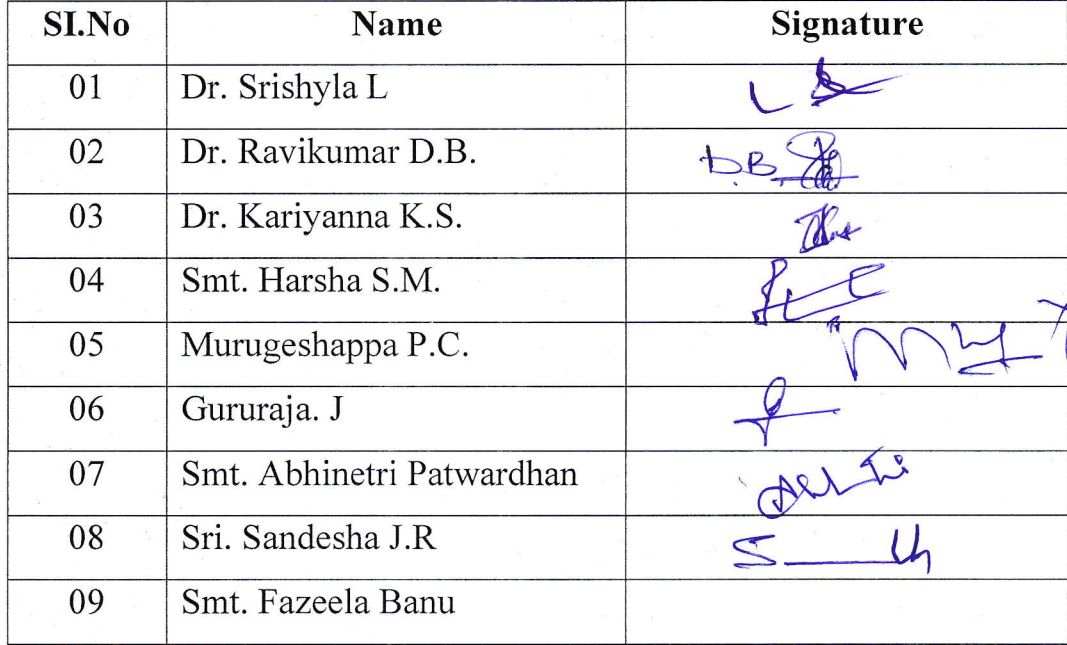 SI.No Name Signature
01 Dr. Srishyla L
02 Dr. Ravikumar D.B. D.B.
03 Dr. Kariyanna K.S.
04 Smt. Harsha S.M.
05 Murugeshappa P.C.
06 Gururaja. J
07 Smt. Abhinetri Patwardhan
08 Sri. Sandesha J.R
09 Smt. Fazeela Banu